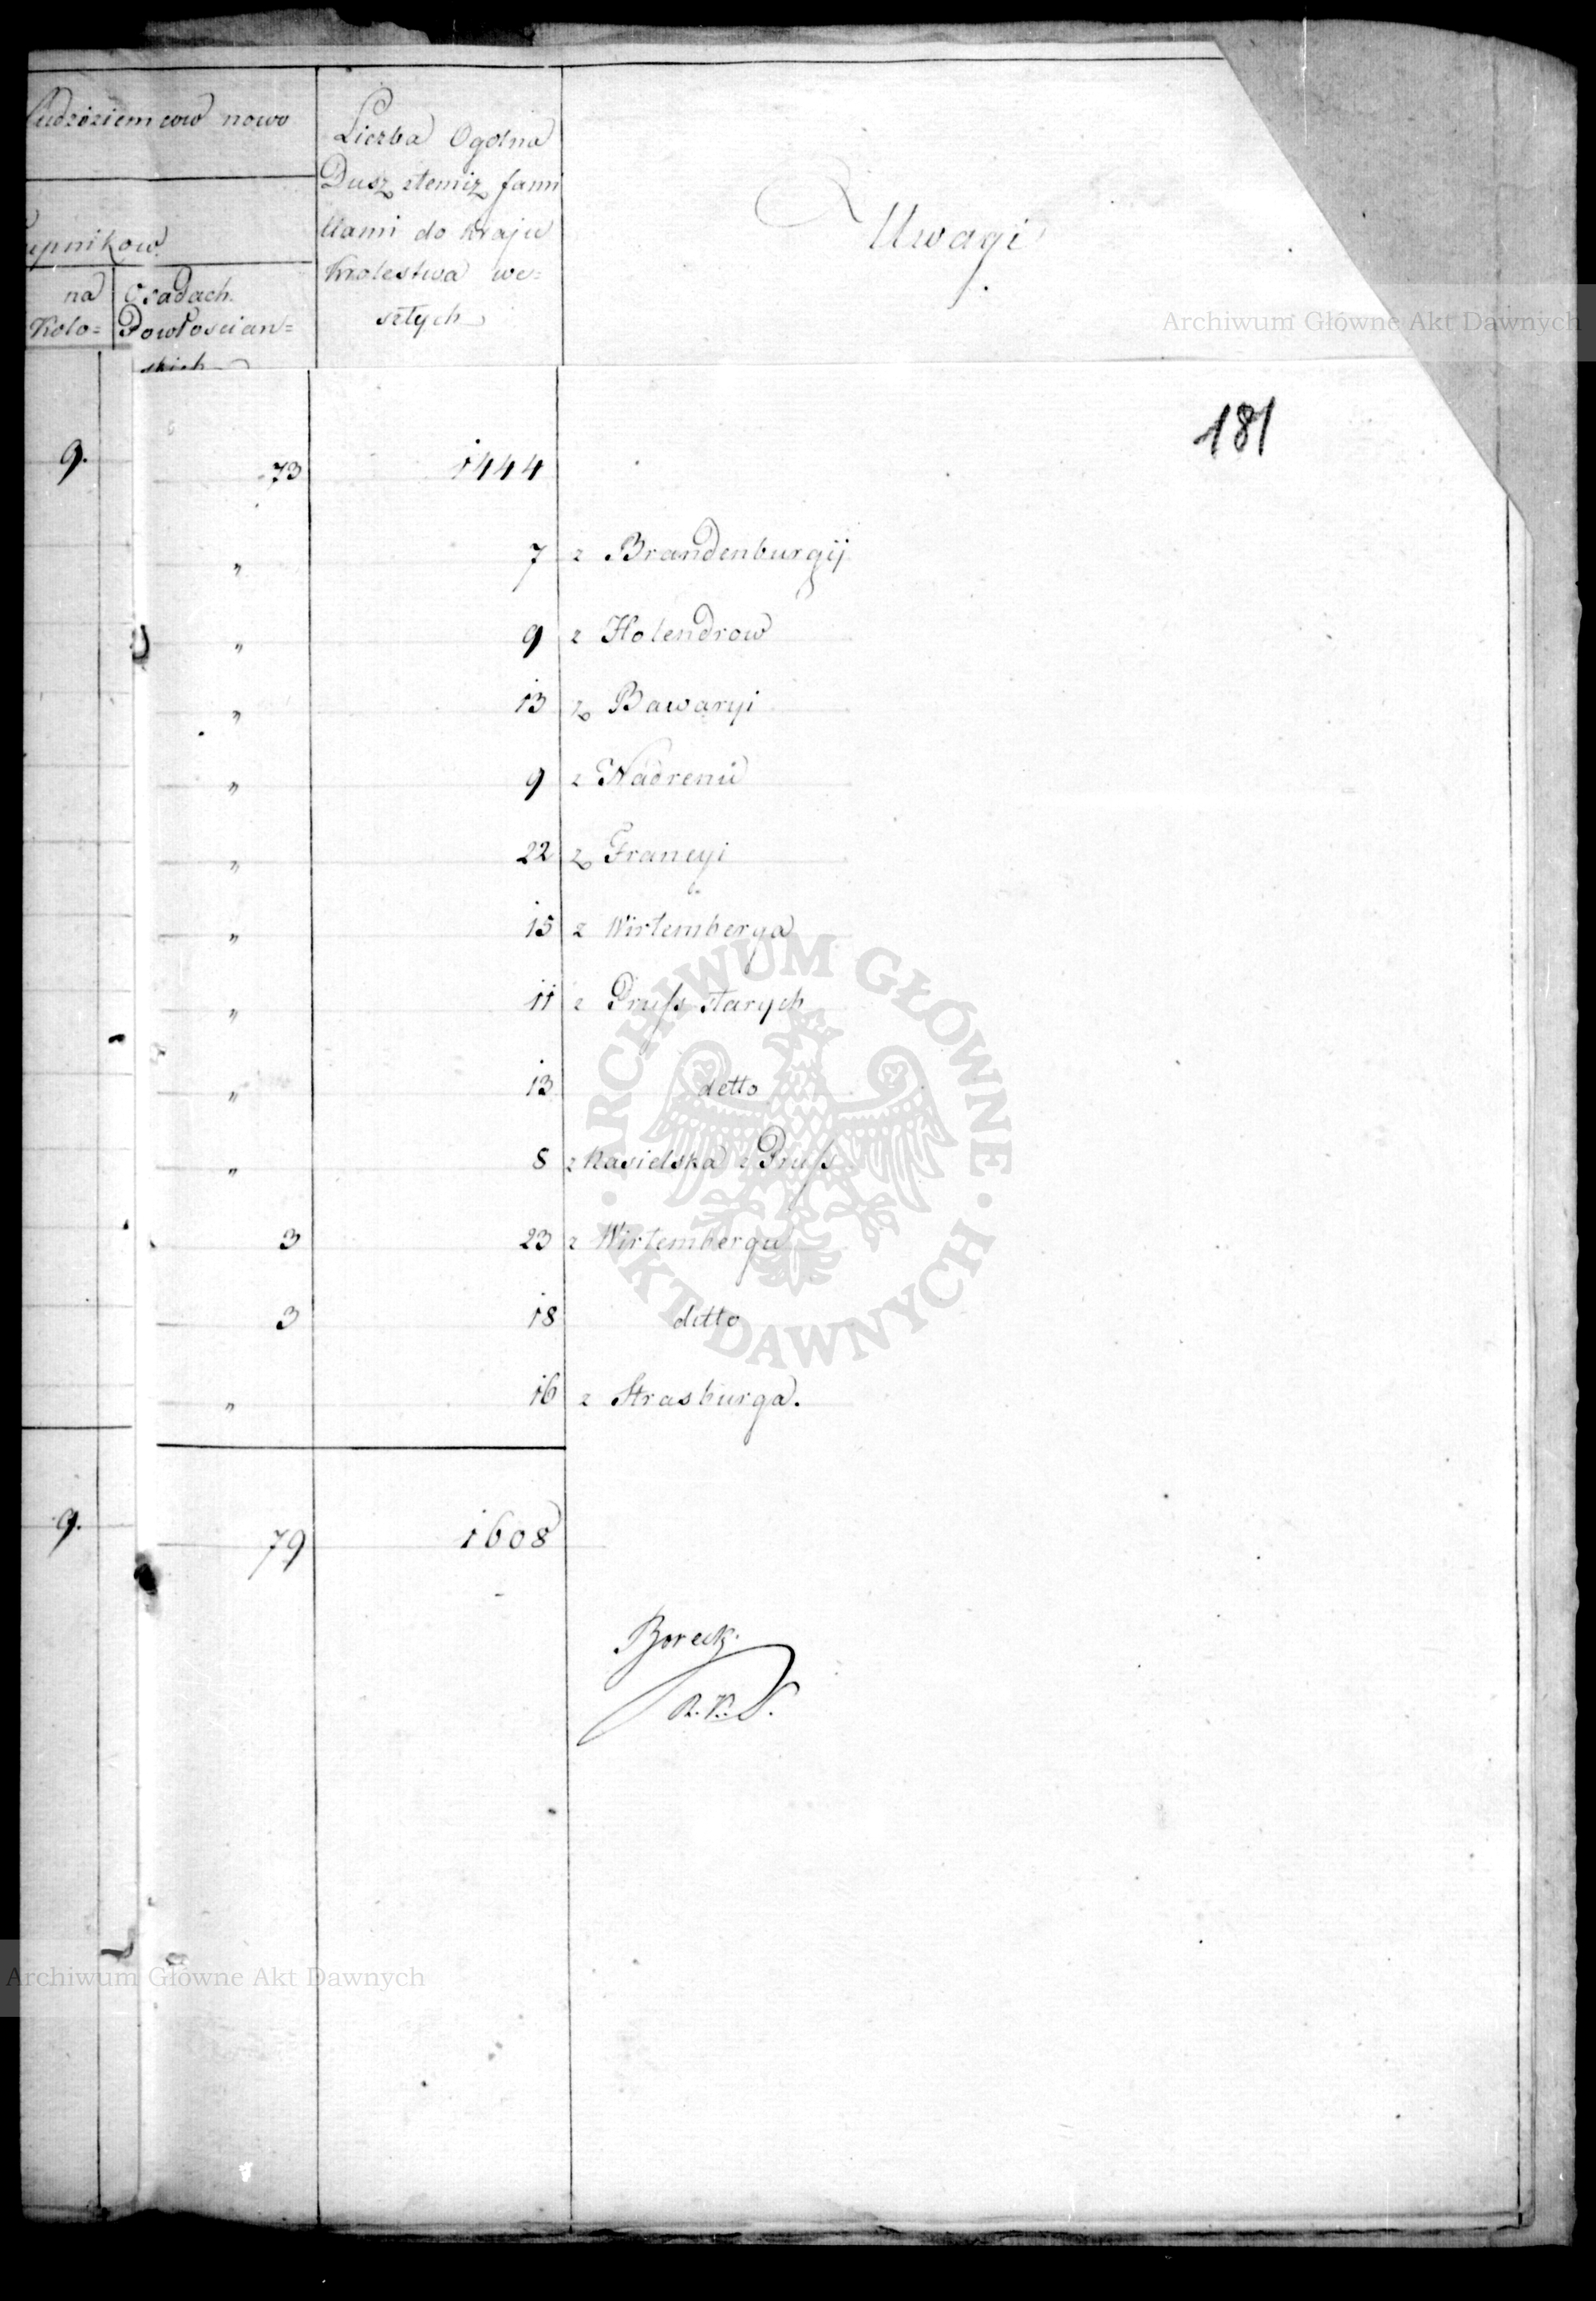 Cudzoziemcow nowo
upnikow
na
Kolo=
Osadach
Powłoscian=
skich
Liczba Ogolna
Dusz ztemiz fami
liami do kraju
Krolestwa we=
szłych
Uwagi
Archiwum Główne Akt Dawnych
181
9. 73 1444
" 7 z Brandenburgij
" 9 z Holendrow
" 13 z Bawaryi
" 9 z Nadrenu
" 22 z Francyi
" 15 z Wirtemberga
" 11 z Pruss starych
" 13 detto
" 8 z Nasielska z Pruss
3 23 z Wirtembergu
3 18 detto
" 16 z Strasburga.
9. 79 1608
ARCHIWUM GŁÓWNE · AKT DAWNYCH ·
R. K.
Archiwum Główne Akt Dawnych